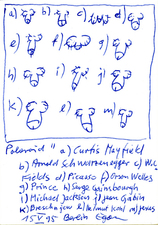 a) b) c) d)
e) f) g)
h) i) j)
k) l) m)
Polaroid " a) Curtis Mayfield
b) Arnold Schwarzenegger c) W.C.
Fields d) Picasso e) Orson Welles
g) Prince h) Serge Gainsbourgh
i) Michael Jackson j) Jean Gabin
k) l) Helmut Kohl m) Jesus
15 V 95 Berlin